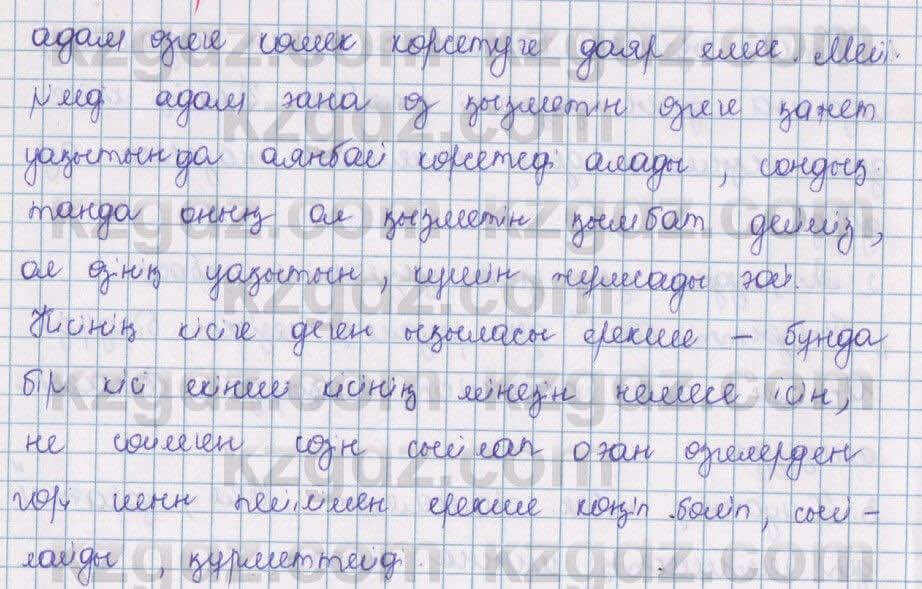 адам өзге көмек көрсетуге даяр емес. Мей-
рімді адам ғана өз қызметін өзге қажет
уақытында аянбай көрсетеді алады, сондық-
танда оның ол қызметін қымбат дейміз,
ол өзінің уақытын, күшін жұмсады ғой.
Кісінің кісіге деген ықыласы ерекше – бұнда
бір кісі екінші кісінің мінезін немесе ісін,
не сөйлеген сөзін сыйлап оған өзгелерден
гөрі шын пейілімен ерекше көңіл бөліп, сый-
лайды, құрметтейді.
kzgdz.com